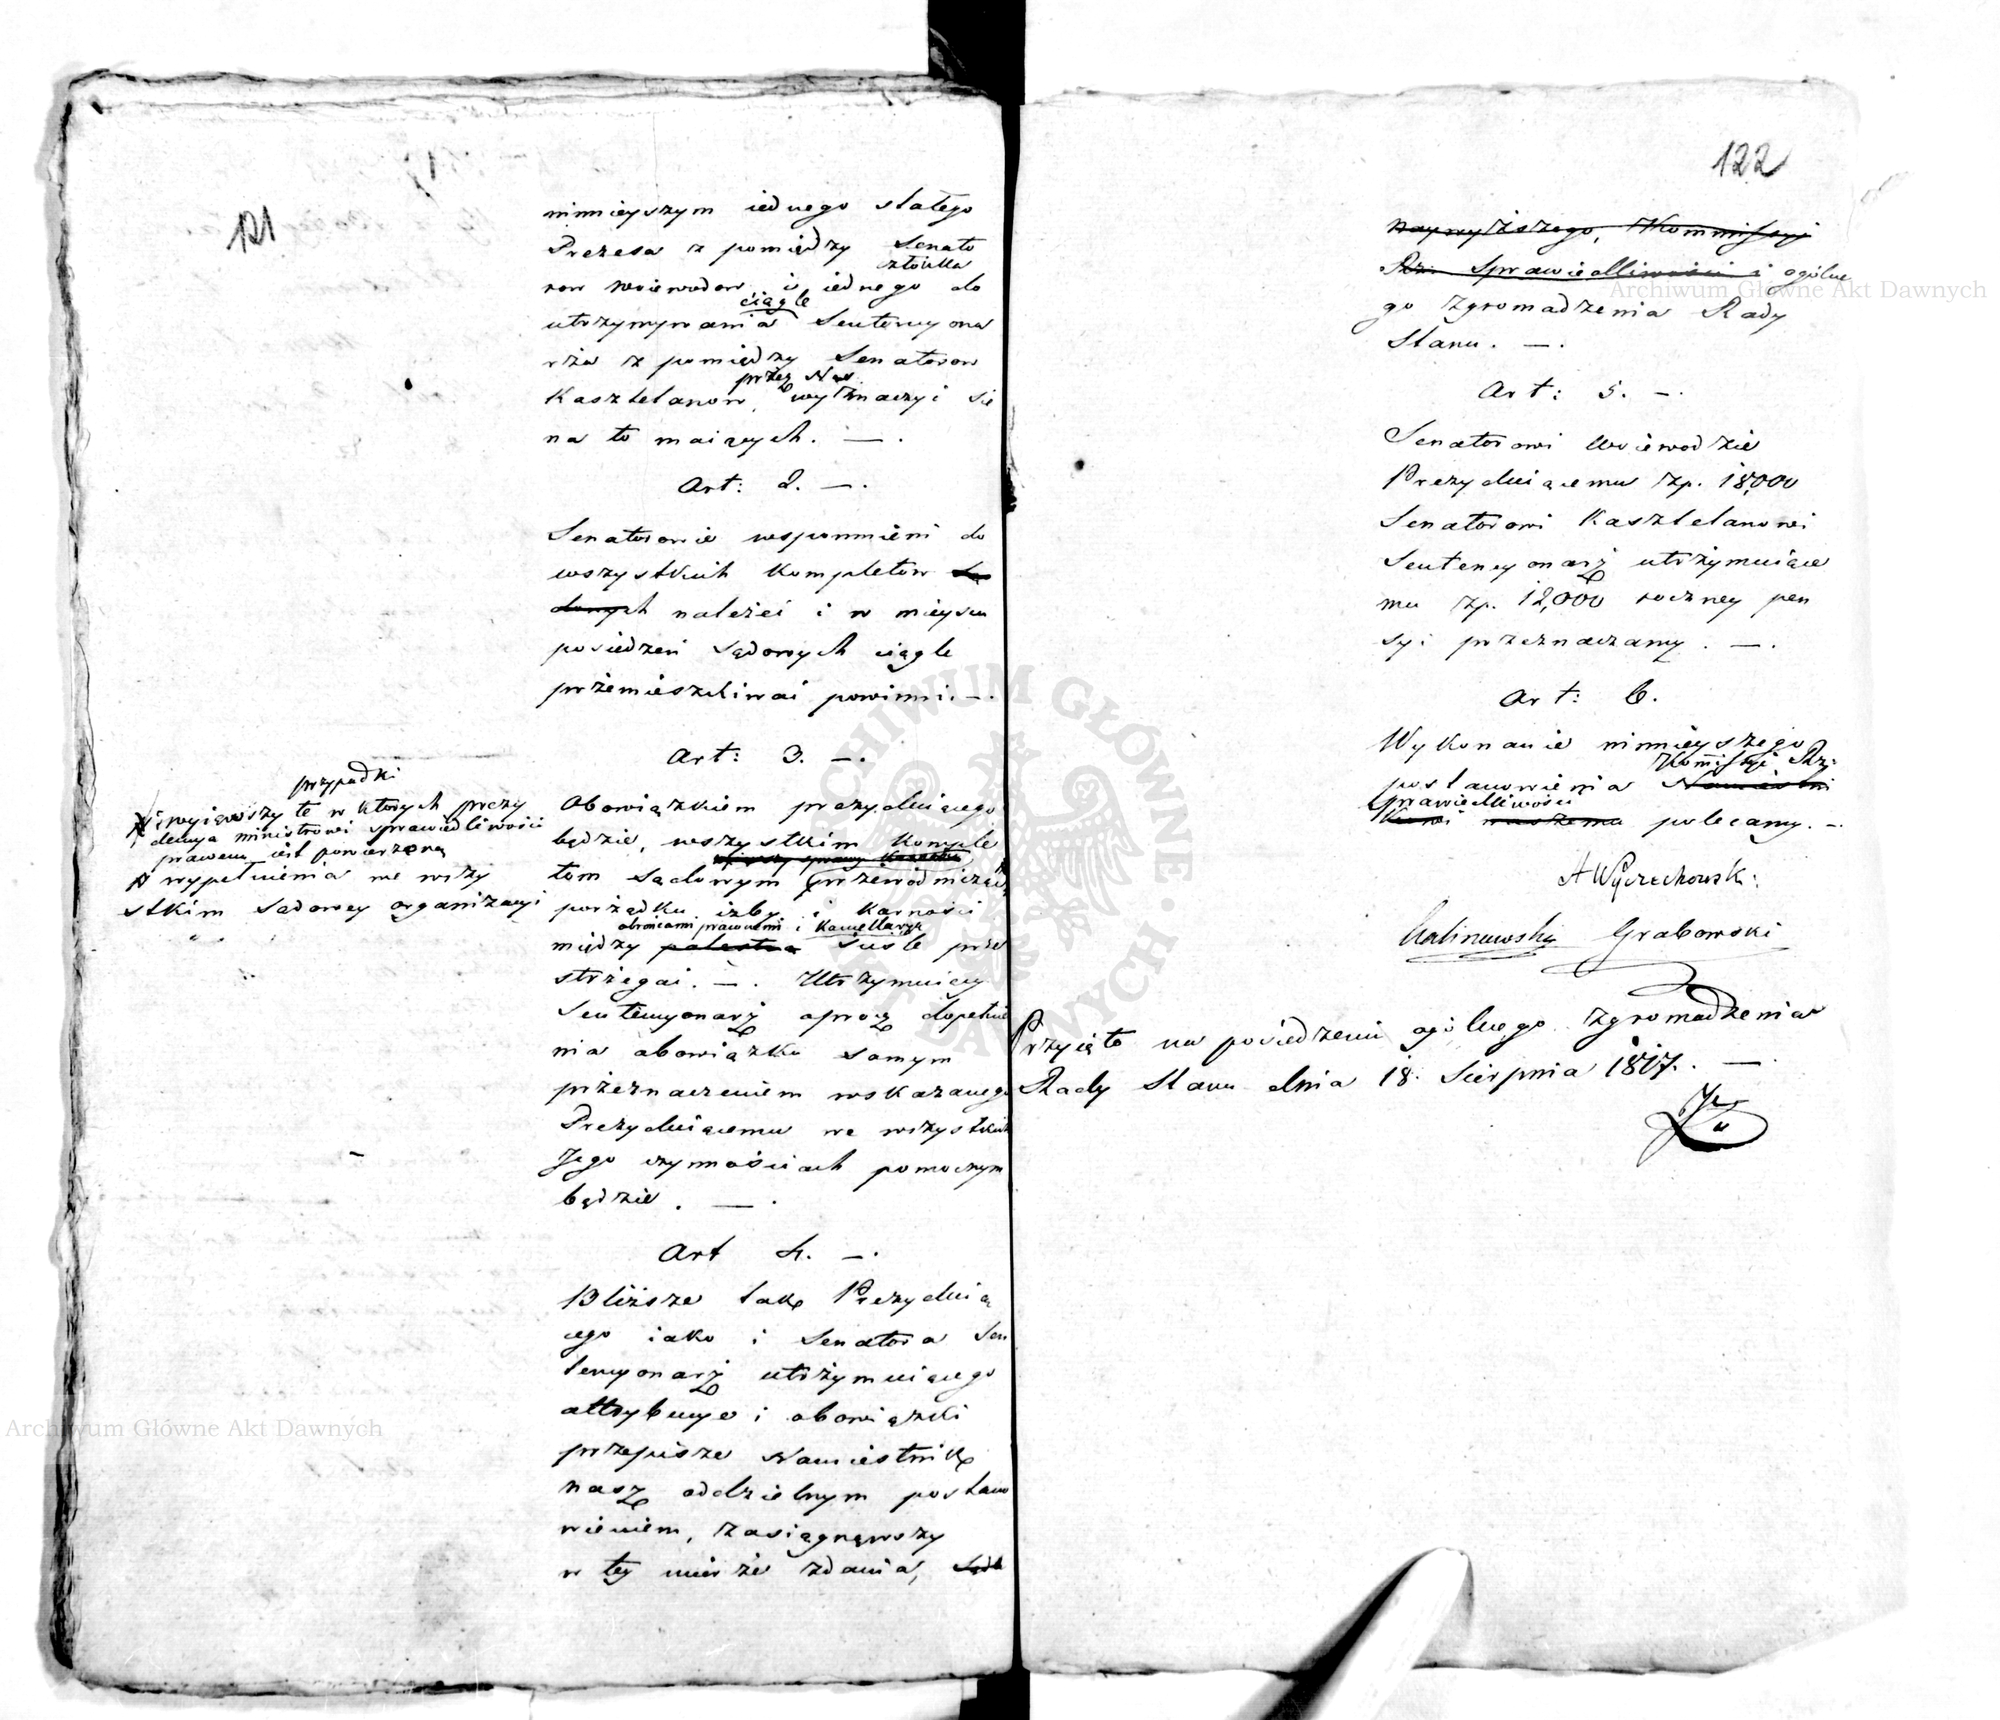 121
ninnieyszym iednego stałego
Prezesa z pomiędzy Senato
członka
row Woiewodow, i iednego do
ciągle
utrzymywania Sentencyona
rża z pomiędzy Senatorow
przez Nas
Kasztelanow, wyznaczyć się
na to maiących. —.
Art: 2. —.
Senatorowie wspomnieni do
wszystkich Kompletów Są
dowych należeć i w mieyscu
posiedzeń Sądowych ciągle
przemieszkiwać powinni. —.
Art: 3. —.
Obowiązkiem prezyduiącego
będzie, wszystkim Komple
tom Sądowym przewodniczyć
porządku izby i Karności
obrońcami prawnemi i Kancellaryą
między palestrą ściśle prze
strzegać. —. Utrzymuiący
Sentencyonarz oprocz dopełnie
nia obowiązku samym
przeznaczeniem wskazanego
Prezyduiącemu we wszystkich
Jego czynnościach pomocnym
będzie. —.
przypadki
wyiąwszy te w których prezy
dencya ministrowi sprawiedliwości
prawem iest powierzona
wypełnienia we wszy
stkim Sądowey organizacyi
Art 4. —.
Bliższe tak Prezyduią
cego iako i Senatora Sen
tencyonarz utrzymuiącego
attrybucye i obowiązki
przepisze Namiestnik
nasz oddzielnym postano
wieniem, zasiągnąwszy
w tey mierze zdania, Sądu
122
naywyższego, Kommissyi
Rz: Sprawiedliwości i ogólne
go zgromadzenia Rady
Stanu. —.
Art: 5. —.
Senatorowi Woiewodzie
Prezyduiącemu Zp. 18,000
Senatorowi Kasztelanowi
Sentencyonarz utrzymuiące
mu zp. 12,000 roczney pen
syi przeznaczamy. —.
Art: 6.
Wykonanie ninnieyszego
Kommissyi Rz:
postanowienia Namiestni
Sprawiedliwości
kowi naszemu polecamy. —
A Wyczechowski
Kalinowski Grabowski
Przyięto na posiedzeniu ogólnego zgromadzenia
Rady Stanu dnia 18. Sierpnia 1817. —
Archiwum Główne Akt Dawnych
Archiwum Główne Akt Dawnych
ARCHIWUM GŁÓWNE AKT DAWNYCH